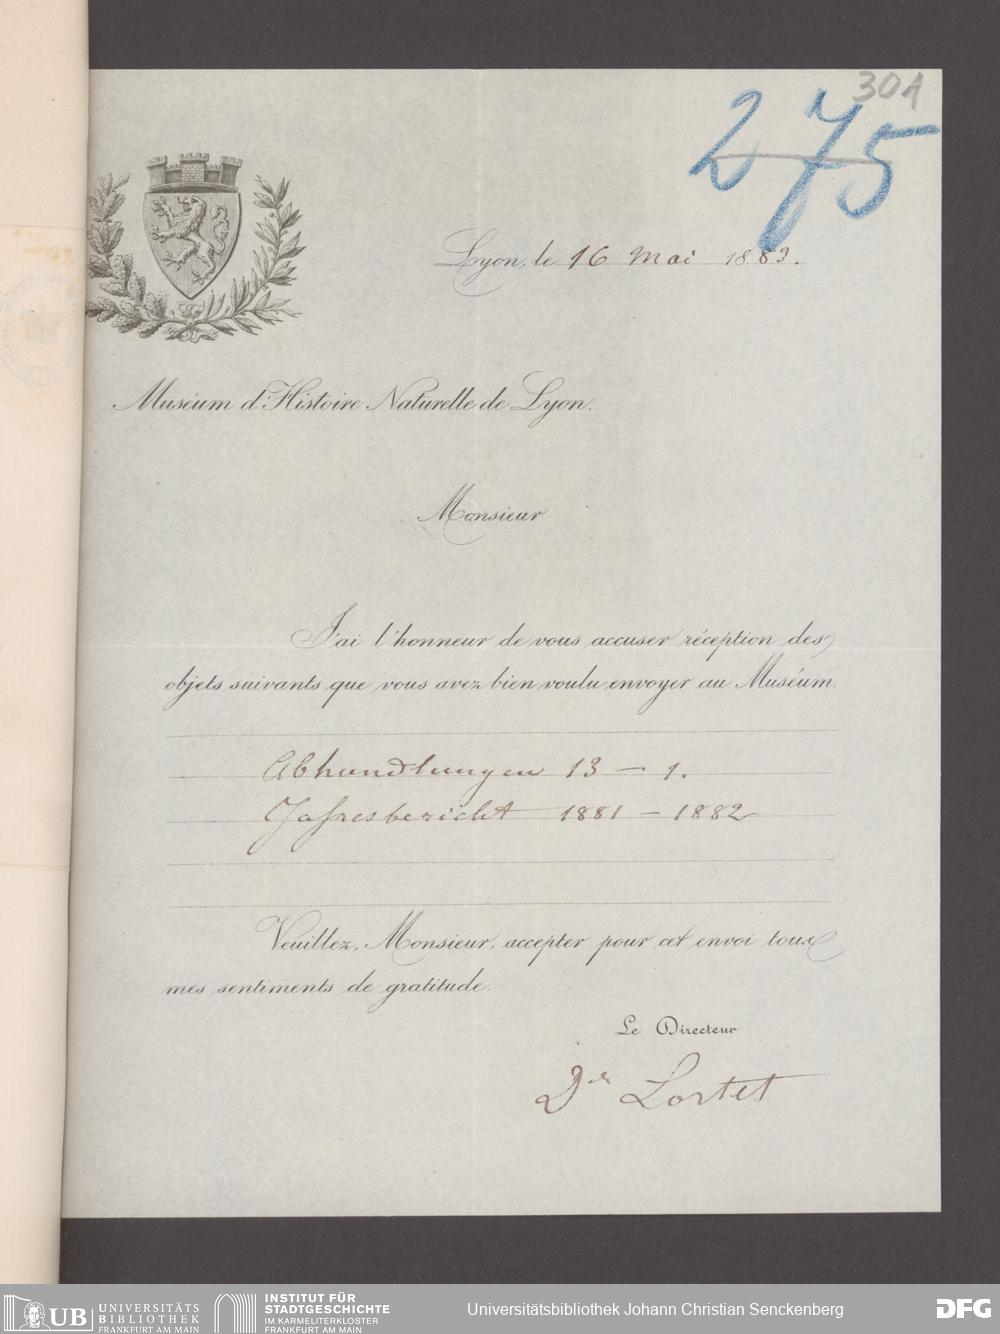 301
275
Lyon, le 16 Mai 1883.
Muséum d'Histoire Naturelle de Lyon.
Monsieur
J'ai l'honneur de vous accuser réception des
objets suivants que vous avez bien voulu envoyer au Muséum.
Abhandlungen 13 — 1.
Jahresbericht 1881 — 1882
Veuillez, Monsieur, accepter pour cet envoi tous
mes sentiments de gratitude.
Le Directeur
Dr Lortet
UB UNIVERSITÄTS
BIBLIOTHEK
FRANKFURT AM MAIN
INSTITUT FÜR
STADTGESCHICHTE
IM KARMELITERKLOSTER
FRANKFURT AM MAIN
Universitätsbibliothek Johann Christian Senckenberg
DFG